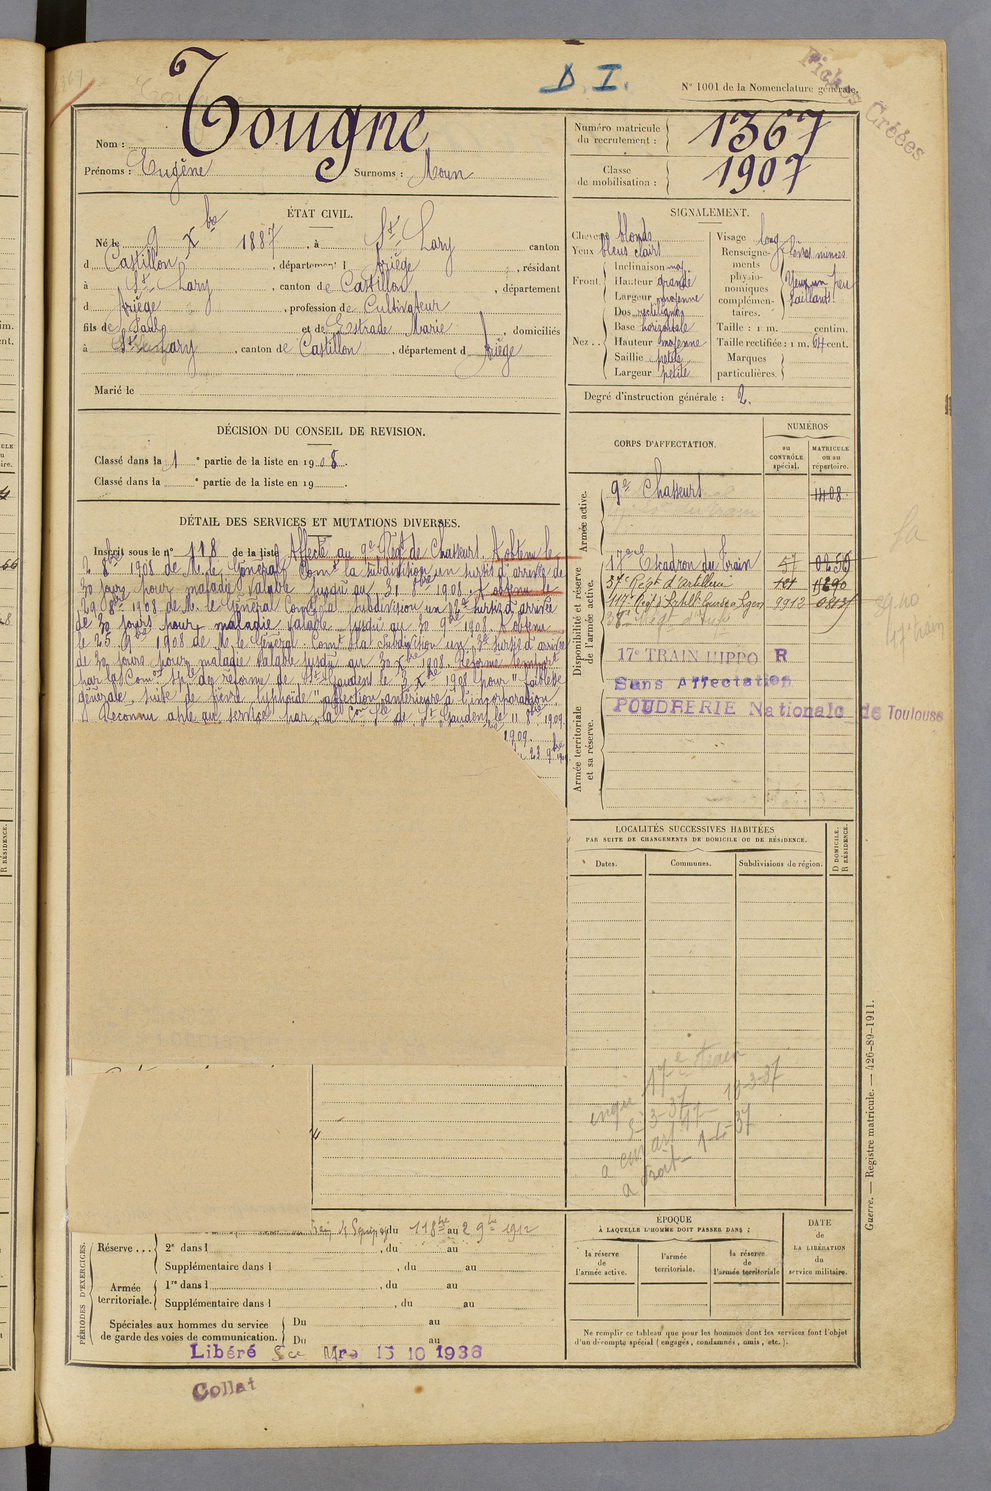 D. I.
N° 1001 de la Nomenclature générale.
Fiches Créées
Tougne
Nom :
Prénoms : Eugène Surnoms : Noun
Numéro matricule du recrutement : 1367
Classe de mobilisation : 1907
ÉTAT CIVIL.
Né le 9 Xbre 1887, à St Lary canton
d Castillon, département d Ariège, résidant
à St Lary, canton de Castillon, département
d Ariège, profession de Cultivateur
fils de Paul et de Estrade Marie, domiciliés
à St Lary, canton de Castillon, département d Ariège
Marié le
SIGNALEMENT.
Cheveux blonds
Yeux bleus clairs
Front
Inclinaison moy
Hauteur grande
Largeur moyenne
Nez
Dos rectiligne
Base horizontale
Hauteur moyenne
Saillie petite
Largeur petite
Visage long
Renseignements physionomiques complémentaires.
lèvres minces
Yeux un peu saillants
Taille : 1 m. centim.
Taille rectifiée : 1 m. 64 cent.
Marques particulières.
Degré d'instruction générale : 2.
DÉCISION DU CONSEIL DE REVISION.
Classé dans la 1 e partie de la liste en 1908.
Classé dans la e partie de la liste en 19
DÉTAIL DES SERVICES ET MUTATIONS DIVERSES.
Inscrit sous le n° 118 de la liste Affecté au 9e Régt de Chasseurs. A obtenu le
2 8bre 1908 de M. le Général Comt la subdivision un sursis d'arrivée de
30 jours pour maladie valable jusqu'au 31 8bre 1908. A obtenu le
29 8bre 1908 de M. le Général Comt la subdivision un 2e sursis d'arrivée
de 30 jours pour maladie valable jusqu'au 30 9bre 1908. A obtenu
le 25 9bre 1908 de M. le Général Comt la subdivision un 3e sursis d'arrivée
de 30 jours pour maladie valable jusqu'au 30 Xbre 1908. Réformé tempor
par la Comon Sple de réforme de St Gaudens le 3 Xbre 1908 pour "faiblesse
générale, suite de fièvre typhoïde" affection antérieure à l'incorporation.
Reconnu apte au service par la Comon Sple de St Gaudens le 11 8bre 1909.
1909.
23 9bre
CORPS D'AFFECTATION.
NUMÉROS
au CONTRÔLE spécial.
MATRICULE ou au répertoire.
Armée active.
9e Chasseurs 1408
Disponibilité et réserve de l'armée active.
17e Escadron du Train 57 0256
117e 9913
17e TRAIN HIPPO R
Sans Affectation
POUDRERIE Nationale de Toulouse
Armée territoriale et sa réserve.
LOCALITÉS SUCCESSIVES HABITÉES
PAR SUITE DE CHANGEMENTS DE DOMICILE OU DE RÉSIDENCE.
Dates. Communes. Subdivisions de région.
D DOMICILE. R RÉSIDENCE.
17e train
5-3-37
19-3-37
1-4-37
Guerre. — Registre matricule. — 426-89-1911.
du 11 8bre au 2 9bre 1912
PÉRIODES D'EXERCICES.
Réserve ...
2e dans l , du au
Supplémentaire dans l , du au
Armée territoriale.
1re dans l , du au
Supplémentaire dans l , du au
Spéciales aux hommes du service de garde des voies de communication.
Du au
Du au
ÉPOQUE
À LAQUELLE L'HOMME DOIT PASSER DANS :
la réserve de l'armée active.
l'armée territoriale.
la réserve de l'armée territoriale
DATE de LA LIBÉRATION du service militaire.
Ne remplir ce tableau que pour les hommes dont les services font l'objet
d'un décompte spécial (engagés, condamnés, omis, etc.).
Libéré Sce Mre 15 10 1936
Collat